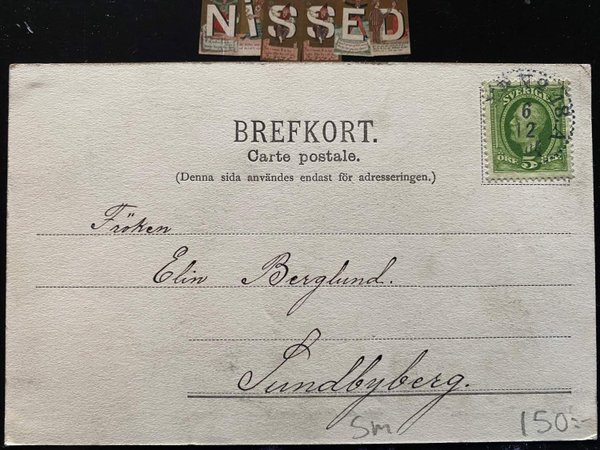 NISSED
BREFKORT.
Carte postale.
(Denna sida användes endast för adresseringen.)
SVERIGE
6
12
5
ÖRE
Fröken
Elin Berglund.
Sundbyberg.
Sm
150:-